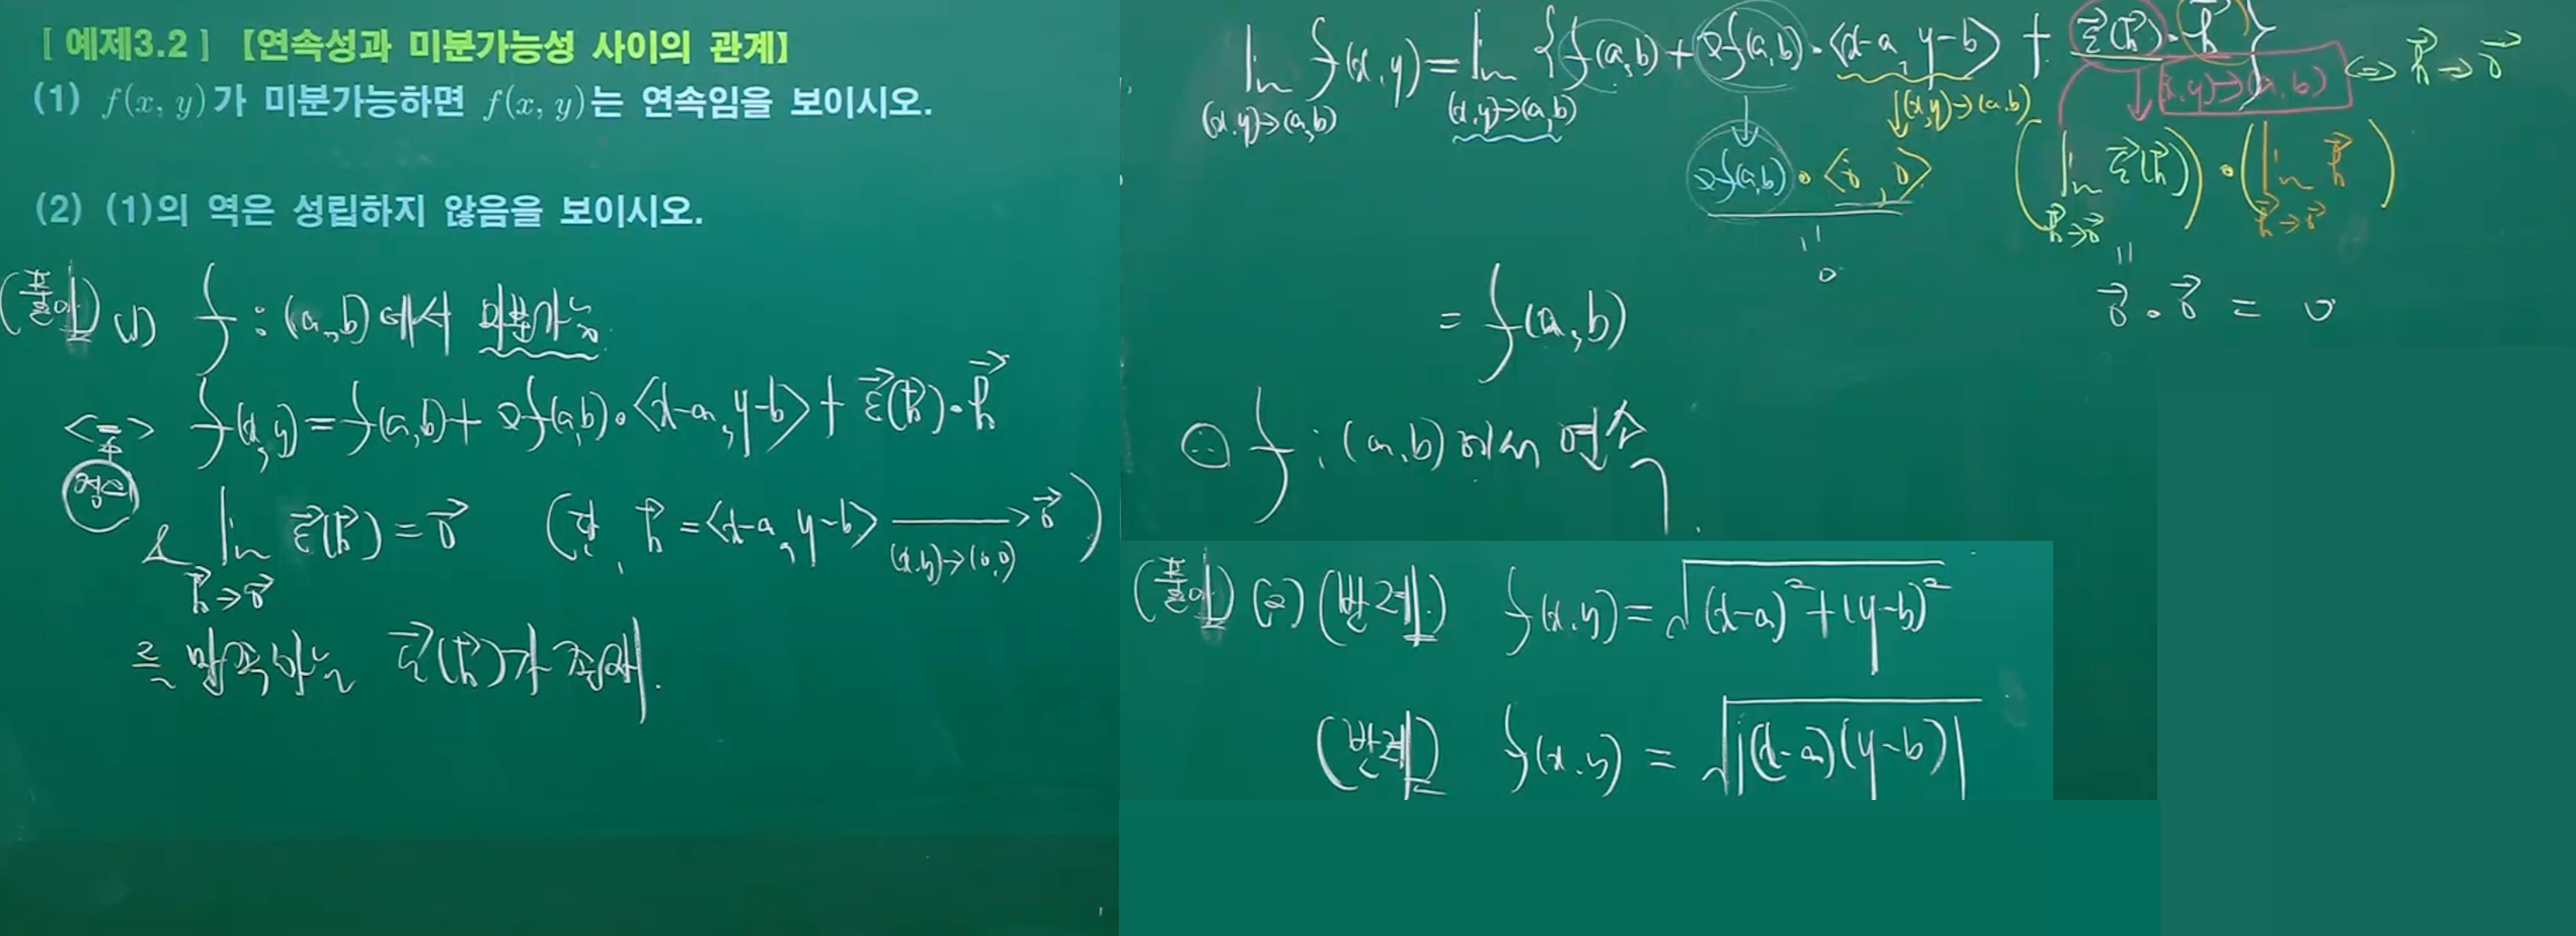 [ 예제3.2 ] 【연속성과 미분가능성 사이의 관계】
(1) f(x, y)가 미분가능하면 f(x, y)는 연속임을 보이시오.
(2) (1)의 역은 성립하지 않음을 보이시오.
(풀이) (1) f : (a, b)에서 미분가능
<=> f(x, y) = f(a, b) + ∇f(a, b)·<x-a, y-b> + ε⃗(h⃗)·h⃗
정의
& lim ε⃗(h⃗) = 0⃗ (단, h⃗ = <x-a, y-b> → 0⃗)
h⃗→0⃗ (x,y)→(0,0)
를 만족하는 ε⃗(h⃗)가 존재.
lim f(x, y) = lim {f(a, b) + ∇f(a, b)·<x-a, y-b> + ε⃗(h⃗)·h⃗} <=> h⃗→0⃗
(x,y)→(a,b) (x,y)→(a,b) ↓(x,y)→(a,b) ↓(x,y)→(a,b)
∇f(a,b)·<0, 0> (lim ε⃗(h⃗))·(lim h⃗)
h⃗→0⃗ h⃗→0⃗
=
0
=
0⃗·0⃗ = 0
= f(a, b)
∴ f : (a, b)에서 연속.
(풀이) (2) (반례.) f(x, y) = √((x-a)²+(y-b)²)
(반례) f(x, y) = √|(x-a)(y-b)|